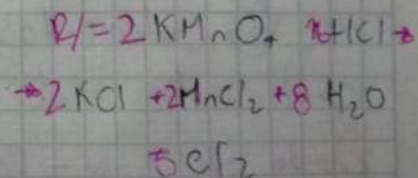 R/= 2 KMnO4 HCl →
→ 2 KCl + 2MnCl2 + 8 H2O
5 Cl2